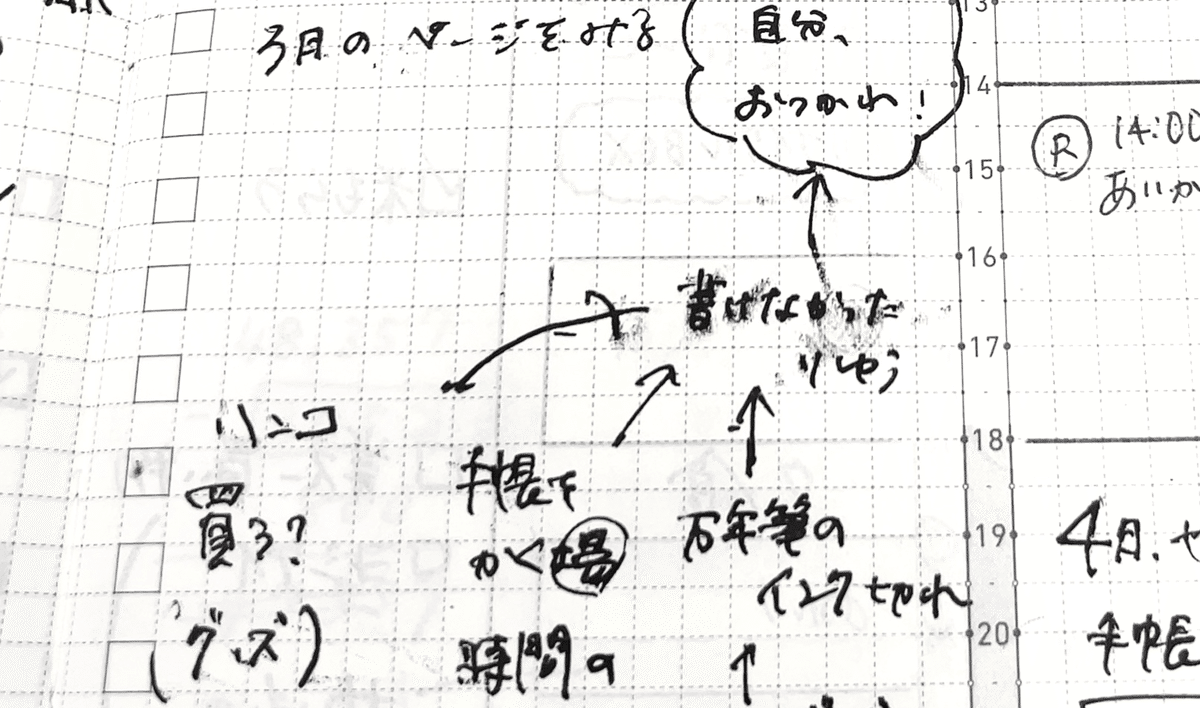 3月のページをみる
自分、
おつかれ!
書けなかった
りゆう
ハンコ
買う?
(グッズ)
手帳を
かく場
時間の
万年筆の
インク切れ
13
14
15
16
17
18
19
20
R 14:00
あいか
4月、せ
手帳